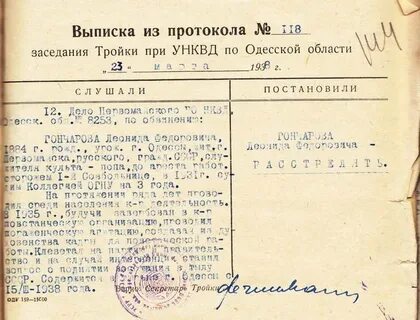 Выписка из протокола № 118
заседания Тройки при УНКВД по Одесской области
"23" марта 1938 г.
144
СЛУШАЛИ
ПОСТАНОВИЛИ
12. Дело Первомайского РО НКВД
Одесск. обл. № 8253, по обвинению:
ГОНЧАРОВА Леонида Федоровича,
1884 г. рожд., урож. г. Одесса, жит. г.
Первомайска, русского, гражд. СССР, слу-
жителя культа - попа, до ареста работ.
сторожем 1-й Совбольнице, в 1931г. су-
дим Коллегией ОГПУ на 3 года.
На протяжении ряда лет прово-
дил среди населения к-р деятельность.
В 1935 г., будучи завербован в к-р
повстанческую организацию, проводил
погаженческую агитацию, создавая из ду-
ховенства кадры для повстанческой ра-
боты. Клеветал на партию и правитель-
ство и на случай интервенции ставил
вопрос о поднятии восстания в тылу
СССР. Содержится в г. Одесса
15/III-1938 года.
ГОНЧАРОВА
Леонида Федоровича-
РАССТРЕЛЯТЬ.
Секретарь Тройки